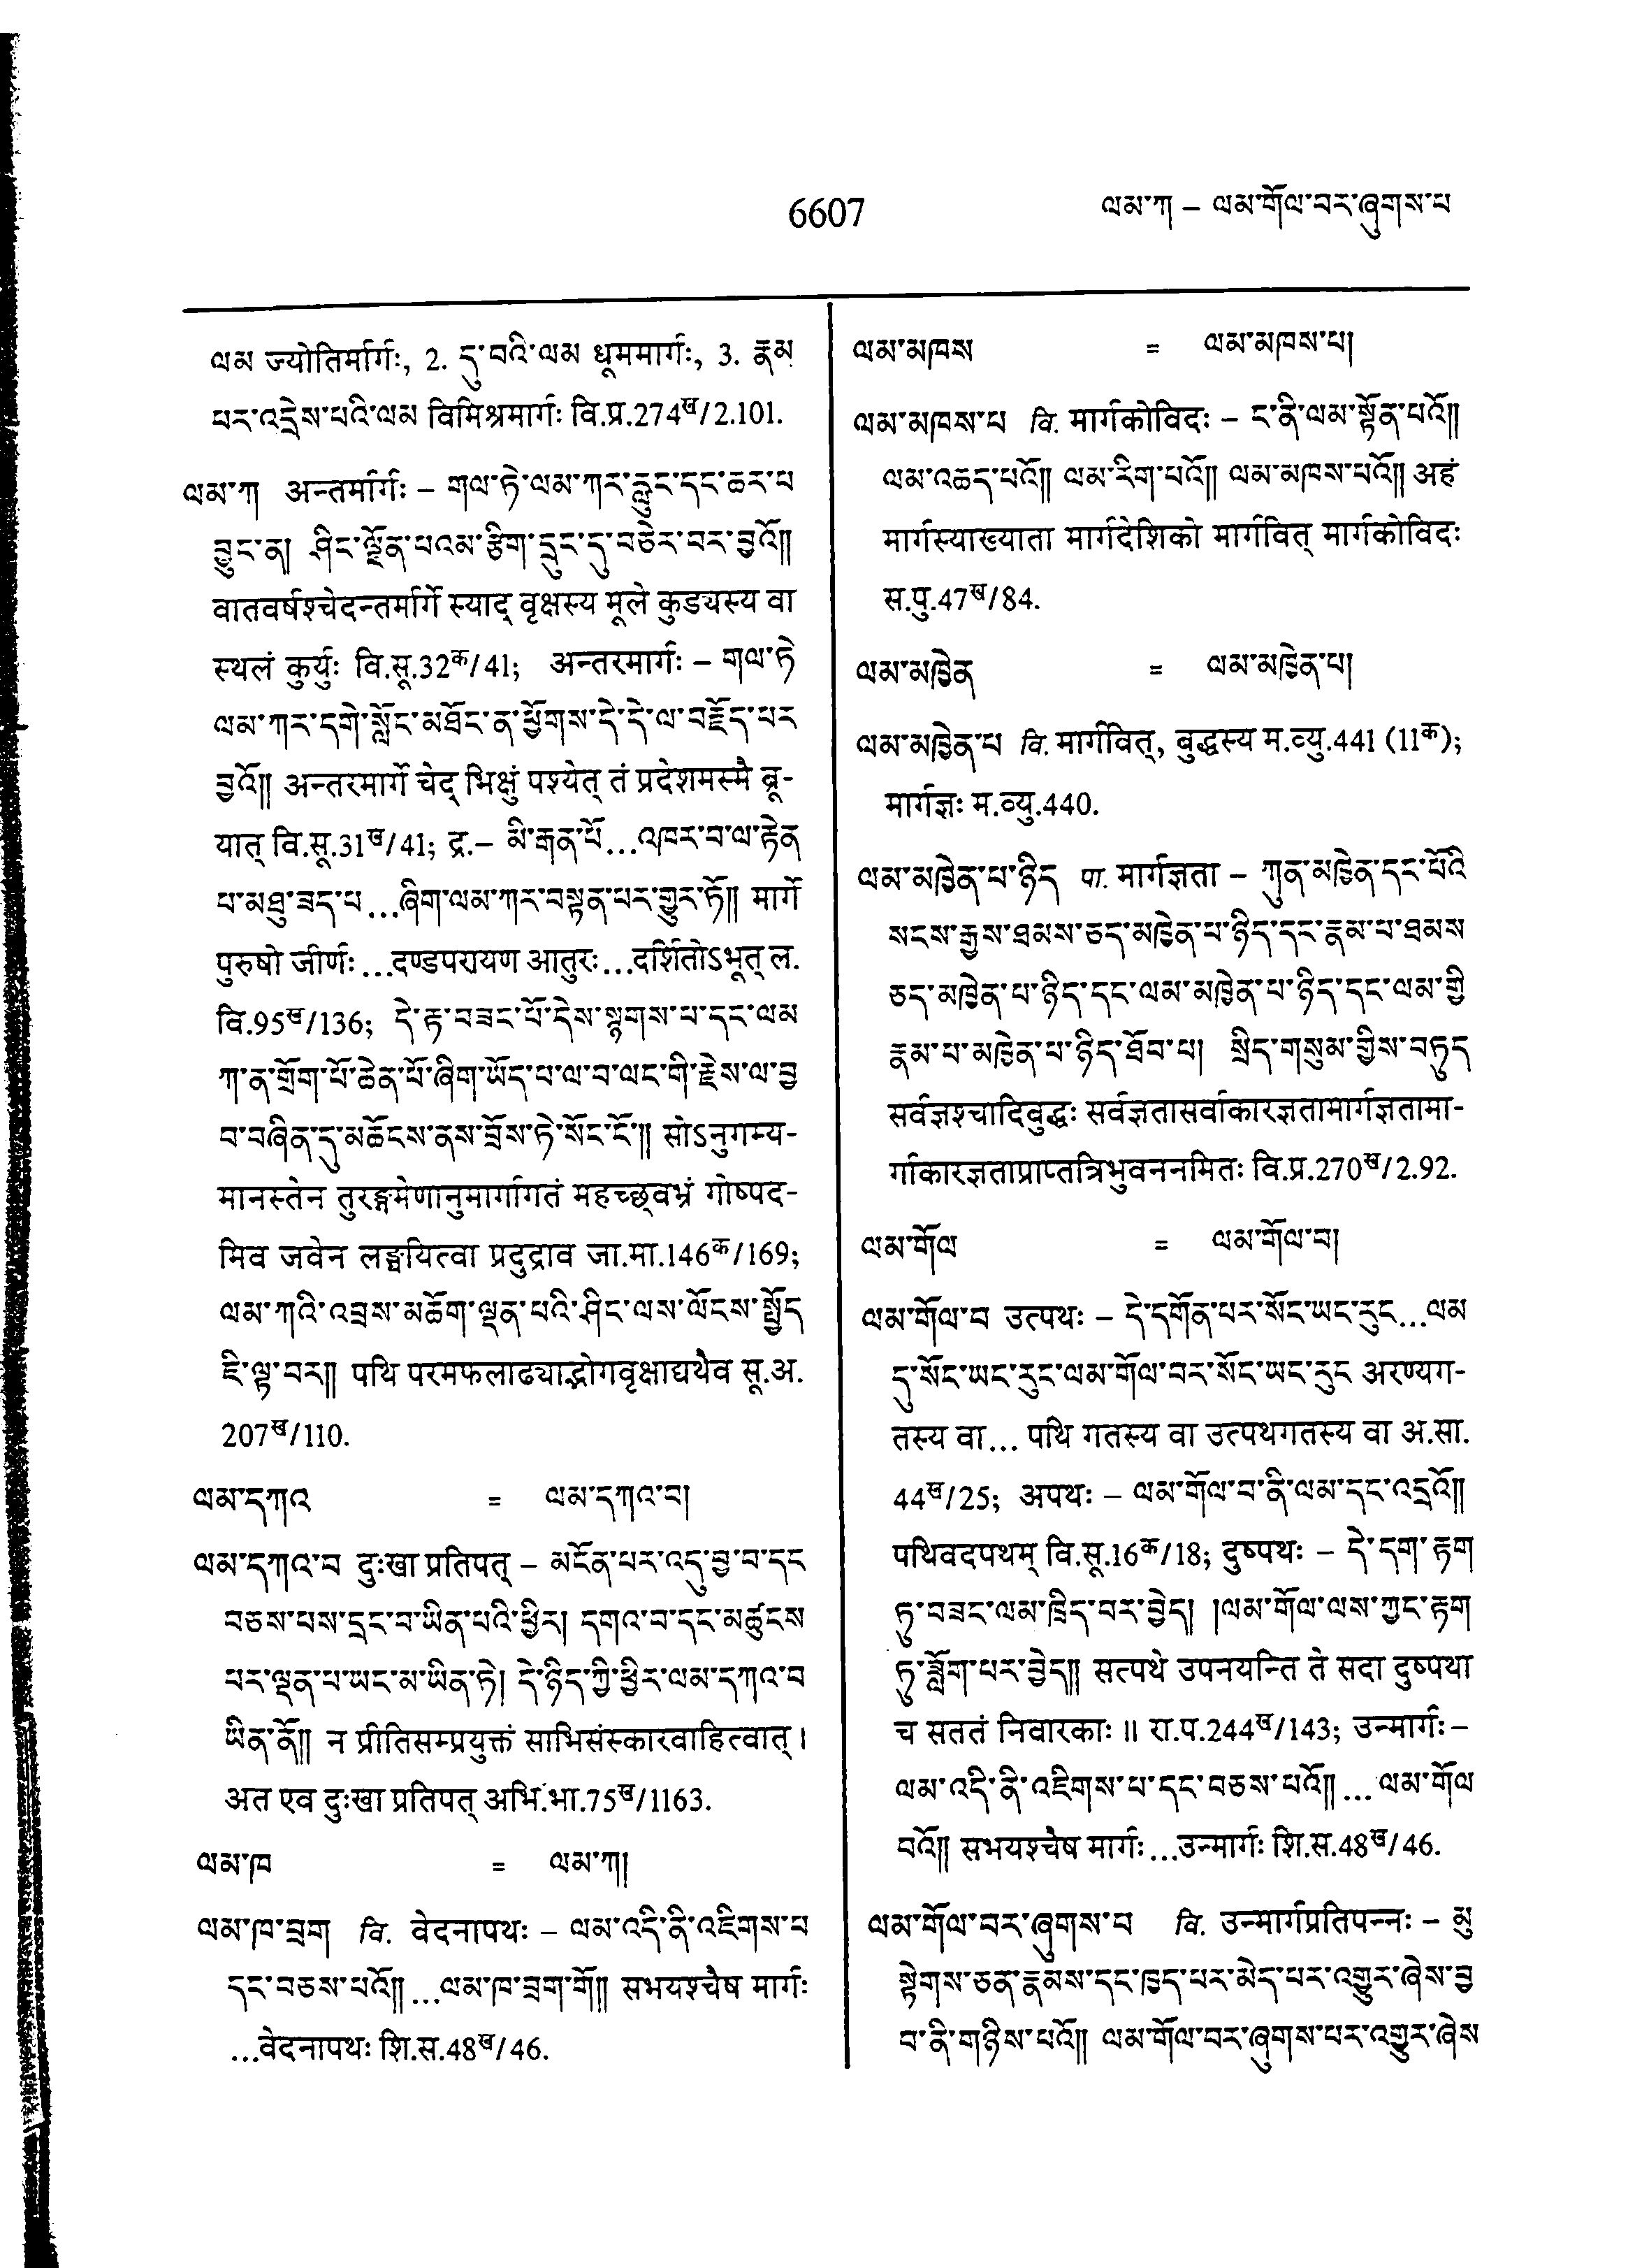 6607
ལམ་ཀ – ལམ་གོལ་བར་ཞུགས་པ
ལམ ज्योतिर्मार्गः, 2. དུ་བའི་ལམ धूममार्गः, 3. རྣམ
པར་འདྲེས་པའི་ལམ विमिश्रमार्गः वि.प्र.274ख/2.101.
ལམ་ཀ अन्तर्मार्गः – གལ་ཏེ་ལམ་ཀར་རླུང་དང་ཆར་པ
བྱུང་ན། ཤིང་ལྗོན་པའམ་རྩིག་དྲུང་དུ་བཅེར་བར་བྱའོ༎
वातवर्षश्चेदन्तर्मार्गे स्याद् वृक्षस्य मूले कुड्यस्य वा
स्थलं कुर्युः वि.सू.32क/41; अन्तरमार्गः – གལ་ཏེ
ལམ་ཀར་དགེ་སློང་མཐོང་ན་ཕྱོགས་དེ་དེ་ལ་བརྗོད་པར
བྱའོ༎ अन्तरमार्गे चेद् भिक्षुं पश्येत् तं प्रदेशमस्मै ब्रू-
यात् वि.सू.31ख/41; द्र.– མི་རྒན་པོ...འཁར་བ་ལ་རྟེན
པ་མཐུ་ཟད་པ...ཞིག་ལམ་ཀར་བསྟན་པར་གྱུར་ཏོ༎ मार्गे
पुरुषो जीर्णः...दण्डपरायण आतुरः...दर्शितोऽभूत् ल.
वि.95ख/136; དེ་རྟ་བཟང་པོ་དེས་སྙགས་པ་དང་ལམ
ཀ་ན་གྲོག་པོ་ཆེན་པོ་ཞིག་ཡོད་པ་ལ་བ་ལང་གི་རྗེས་ལ་བྱ
བ་བཞིན་དུ་མཆོངས་ནས་བྲོས་ཏེ་སོང་ངོ་༎ सोऽनुगम्य-
मानस्तेन तुरङ्गमेणानुमार्गागतं महच्छ्वभ्रं गोष्पद-
मिव जवेन लङ्घयित्वा प्रदुद्राव जा.मा.146क/169;
ལམ་ཀའི་འབྲས་མཆོག་ལྡན་པའི་ཤིང་ལས་ལོངས་སྤྱོད
ཇི་ལྟ་བར༎ पथि परमफलाढ्याद्भोगवृक्षाद्यथैव सू.अ.
207ख/110.
ལམ་དཀའ = ལམ་དཀའ་བ།
ལམ་དཀའ་བ दुःखा प्रतिपत् – མངོན་པར་འདུ་བྱ་བ་དང
བཅས་པས་དྲང་བ་ཡིན་པའི་ཕྱིར། དགའ་བ་དང་མཚུངས
པར་ལྡན་པ་ཡང་མ་ཡིན་ཏེ། དེ་ཉིད་ཀྱི་ཕྱིར་ལམ་དཀའ་བ
ཡིན་ནོ༎ न प्रीतिसम्प्रयुक्तं साभिसंस्कारवाहित्वात् ।
अत एव दुःखा प्रतिपत् अभि.भा.75ख/1163.
ལམ་ཁ = ལམ་ཀ།
ལམ་ཁ་བྲག वि. वेदनापथः – ལམ་འདི་ནི་འཇིགས་པ
དང་བཅས་པའོ༎...ལམ་ཁ་བྲག་གོ༎ सभयश्चैष मार्गः
...वेदनापथः शि.स.48ख/46.
ལམ་མཁས = ལམ་མཁས་པ།
ལམ་མཁས་པ वि. मार्गकोविदः – ང་ནི་ལམ་སྟོན་པའོ༎
ལམ་འཆད་པའོ༎ ལམ་རིག་པའོ༎ ལམ་མཁས་པའོ༎ अहं
मार्गस्याख्याता मार्गदेशिको मार्गवित् मार्गकोविदः
स.पु.47ख/84.
ལམ་མཁྱེན = ལམ་མཁྱེན་པ།
ལམ་མཁྱེན་པ वि. मार्गवित्, बुद्धस्य म.व्यु.441 (11क);
मार्गज्ञः म.व्यु.440.
ལམ་མཁྱེན་པ་ཉིད पा. मार्गज्ञता – ཀུན་མཁྱེན་དང་པོའི
སངས་རྒྱས་ཐམས་ཅད་མཁྱེན་པ་ཉིད་དང་རྣམ་པ་ཐམས
ཅད་མཁྱེན་པ་ཉིད་དང་ལམ་མཁྱེན་པ་ཉིད་དང་ལམ་གྱི
རྣམ་པ་མཁྱེན་པ་ཉིད་ཐོབ་པ། སྲིད་གསུམ་གྱིས་བཏུད
सर्वज्ञश्चादिबुद्धः सर्वज्ञतासर्वाकारज्ञतामार्गज्ञतामा-
र्गाकारज्ञताप्राप्तत्रिभुवननमितः वि.प्र.270ख/2.92.
ལམ་གོལ = ལམ་གོལ་བ།
ལམ་གོལ་བ उत्पथः – དེ་དགོན་པར་སོང་ཡང་རུང...ལམ
དུ་སོང་ཡང་རུང་ལམ་གོལ་བར་སོང་ཡང་རུང अरण्यग-
तस्य वा... पथि गतस्य वा उत्पथगतस्य वा अ.सा.
44ख/25; अपथः – ལམ་གོལ་བ་ནི་ལམ་དང་འདྲའོ༎
पथिवदपथम् वि.सू.16क/18; दुष्पथः – དེ་དག་རྟག
ཏུ་བཟང་ལམ་ཁྲིད་བར་བྱེད། །ལམ་གོལ་ལས་ཀྱང་རྟག
ཏུ་བློག་པར་བྱེད༎ सत्पथे उपनयन्ति ते सदा दुष्पथा
च सततं निवारकाः ॥ रा.प.244ख/143; उन्मार्गः –
ལམ་འདི་ནི་འཇིགས་པ་དང་བཅས་པའོ༎... ལམ་གོལ
བའོ༎ सभयश्चैष मार्गः...उन्मार्गः शि.स.48ख/46.
ལམ་གོལ་བར་ཞུགས་པ वि. उन्मार्गप्रतिपन्नः – མུ
སྟེགས་ཅན་རྣམས་དང་ཁྱད་པར་མེད་པར་འགྱུར་ཞེས་བྱ
བ་ནི་གཉིས་པའོ༎ ལམ་གོལ་བར་ཞུགས་པར་འགྱུར་ཞེས